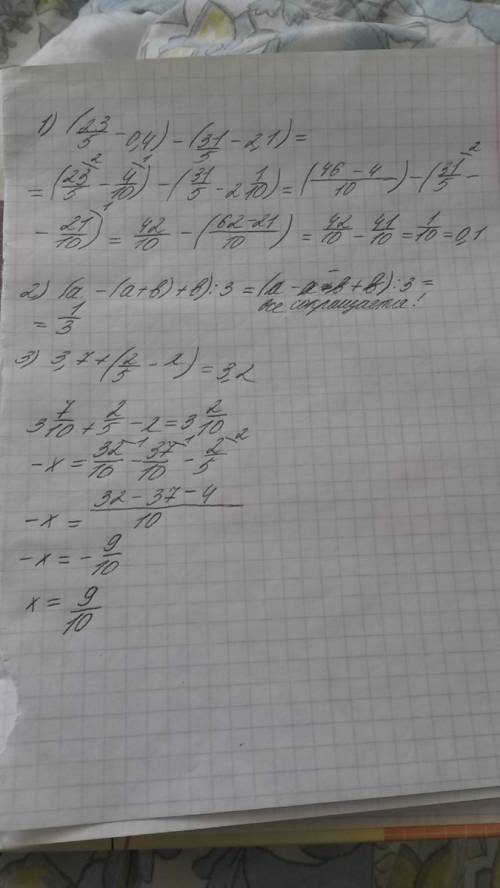 1) (23/5 - 0,4) - (31/5 - 2,1) =
= (23/5 ² - 4/10 ¹) - (31/5 - 2 1/10) = ((46 - 4)/10) - (31/5 ² -
- 21/10 ¹) = 42/10 - ((62 - 21)/10) = 42/10 - 41/10 = 1/10 = 0,1
2) (a - (a+b) + b) : 3 = (a - a - b + b) : 3 =
все сокращается!
= 1/3
3) 3,7 + (2/5 - 2) = 3,2
3 7/10 + 2/5 - 2 = 3 2/10
-x = 32/10 ¹ - 37/10 ¹ - 2/5 ²
-x = (32 - 37 - 4)/10
-x = - 9/10
x = 9/10